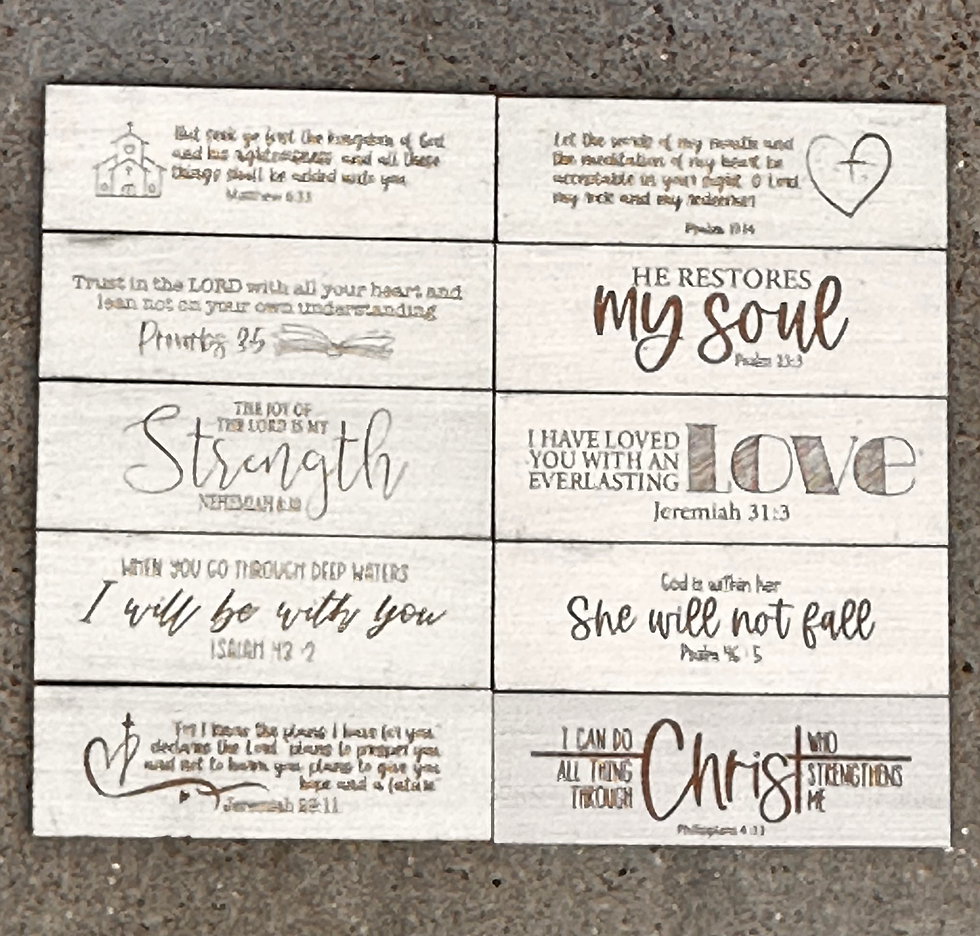 But seek ye first the kingdom of God
and his righteousness and all these
things shall be added unto you
Matthew 6:33
Let the words of my mouth and
the meditation of my heart be
acceptable in your sight O Lord
my rock and my redeemer
Psalm 19:14
Trust in the LORD with all your heart and
lean not on your own understanding
Proverbs 3:5
HE RESTORES
my soul
Psalm 23:3
THE JOY OF
THE LORD IS MY
Strength
NEHEMIAH 8:10
I HAVE LOVED
YOU WITH AN
EVERLASTING
Love
Jeremiah 31:3
WHEN YOU GO THROUGH DEEP WATERS
I will be with you
ISAIAH 43:2
God is within her
She will not fall
Psalm 46:5
"For I know the plans I have for you"
declares the Lord "plans to prosper you
and not to harm you, plans to give you
hope and a future"
Jeremiah 29:11
I CAN DO
ALL THING
THROUGH
Christ
WHO
STRENGTHENS
ME
Philippians 4:13